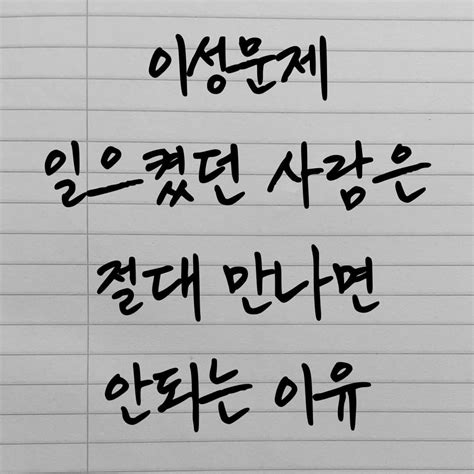 이성문제
일으켰던 사람은
절대 만나면
안되는 이유